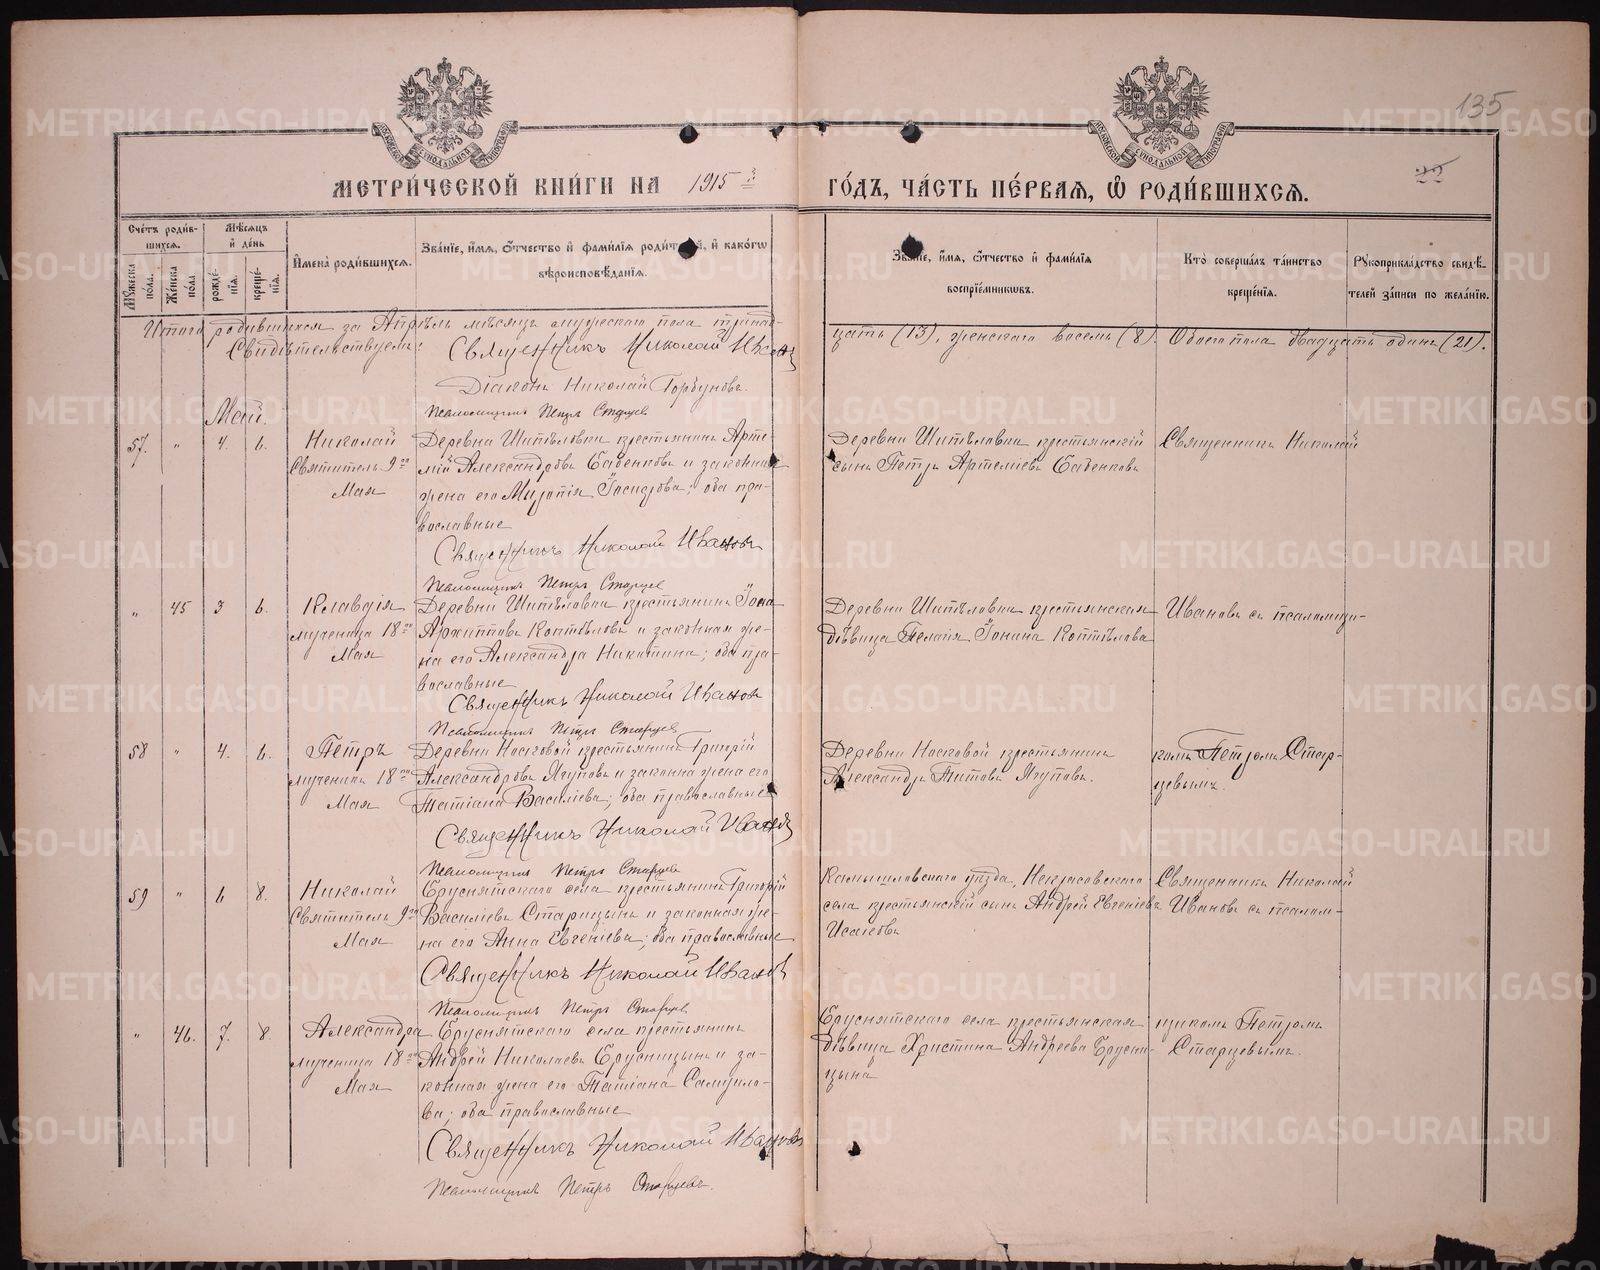 135
22
МЕТРИ́ЧЕСКОЙ КНИ́ГИ НА 1915 й ГО́ДЪ, ЧА́СТЬ ПЕ́РВАЯ, Ѡ РОДИ́ВШИХСЯ.
Сче́тъ роди́вшихся.
Мѣ́сяцъ и де́нь
Му́жеска по́ла.
Же́нска по́ла.
рожде́нїя.
креще́нїя.
И҆мена̀ роди́вшихся.
Зва́нїе, и҆́мя, ѻ҆́тчество и҆ фами́лїя роди́телей, и҆ како́гѡ вѣроисповѣ́данїя.
Зва́нїе, и҆́мя, ѻ҆́тчество и҆ фами́лїя воспрїе́мникѡвъ.
Кто̀ соверша́лъ та́инство креще́нїя.
Рꙋкоприкла́дство свидѣ́телей за́писи по жела́нїю.
Итого родившихся за Апрѣль мѣсяцъ мужескаго пола тринад-
цать (13), женскаго восемь (8). Обоего пола двадцать одинъ (21).
Свидѣтельствуемъ: Священникъ Николай Ивановъ
Діаконъ Николай Горбуновъ.
Псаломщикъ Петръ Старцев
Май.
57. " 4. 6.
Николай
Святитель 9го
Мая
Деревни Шипѣловки крестьянинъ Арте-
мій Александровъ Бабенковъ и законная
жена его
Іосифова; оба пра-
вославные
Священникъ Николай Ивановъ
Псаломщикъ Петръ Старцев
Деревни Шипѣловки крестьянскій
сынъ Петръ Артеміевъ Бабенковъ
Священникъ Николай
" 45 3 6.
Клавдія
мученица 18го
Мая
Деревни Шипѣловки крестьянинъ Іона
Архиповъ Коптѣловъ и законная же-
на его Александра Никитина; оба пра-
вославные
Священникъ Николай Ивановъ
Псаломщикъ Петръ Старцев
Деревни Шипѣловки крестьянская
дѣвица Пелагія Іонина Коптѣлова
Ивановъ съ псаломщи-
58 " 4. 6.
Петръ
мученикъ 18го
Мая
Деревни Носковой крестьянинъ Григорій
Александровъ Ягуповъ и законна жена его
Татіана Василіева; оба православные
Священникъ Николай Ивановъ
Псаломщикъ Петръ Старцев
Деревни Носковой крестьянинъ
Александръ Титовъ Ягуповъ.
комъ Петромъ Стар-
цевымъ.
59 " 6 8.
Николай
Святитель 9го
Мая
Бруснятскаго села крестьянинъ Григорій
Василіевъ Старицынъ и законная же-
на его Анна Евгеніева; оба православные
Священникъ Николай Ивановъ
Псаломщикъ Петръ Старцев
Камышловскаго уѣзда, Некрасовскаго
села крестьянскій сынъ Андрей Евгеніевъ
Исаковъ
Священникъ Николай
Ивановъ съ псалом-
" 46. 7. 8.
Александра
мученица 18го
Мая
Бруснятскаго села крестьянинъ
Андрей Николаевъ Брусницынъ и за-
конная жена его Татіана Самуило-
ва; оба православные
Священникъ Николай Ивановъ
Псаломщикъ Петръ Старцевъ.
Бруснятскаго села крестьянская
дѣвица Христина Андреева Брусни-
цына
щикомъ Петромъ
Старцевымъ.
METRIKI.GASO-URAL.RU